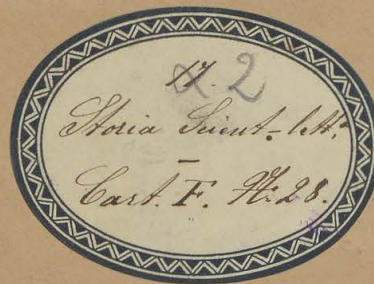 17. 2
Storia Scient-lett.ª
–
Cart. F. N: 28.